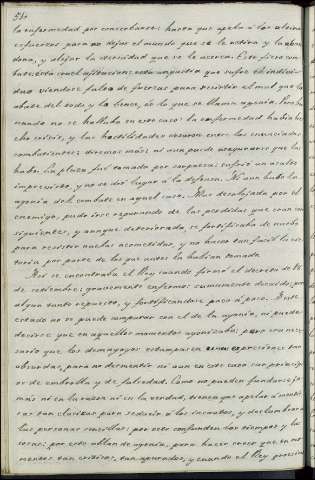 54.
la enfermedad por consecuencia: hasta que apela á los ultimos
esfuerzos para no dejar el mundo que se le retira y la aban
dona, y alejar la eternidad que se le acerca. Este fiero com
bate esta cruel afliccion: esta angustia que sufre el indivi
duo viendose falto de fuerzas para resistir el mal que lo
abate del todo y lo vence, es lo que se llama agonía. Pero Fer
nando no se hallaba en este caso: la enfermedad habia he
cho crisis, y las hostilidades cesaron entre los enunciados
combatientes: diremos mas: ni aun puede asegurarse que las
hubo. La plaza fué tomada por sorpresa: sufrió un asalto
imprevisto, y no se dió lugar á la defensa. Ni aun hubo la
agonía del combate en aquel caso. Mas desalojado por el
enemigo, pudo irse reparando de las perdidas que eran con
siguientes, y aunque deteriorada, se fortificaba de nuevo
para resistir nuevas acometidas, y no hacer tan facil la vic
toria por parte de los que antes la habian tomado.
Asi se encontraba el Rey cuando firmó el decreto de 18
de setiembre: gravemente enfermo: sumamente decaido; por
algun tanto repuesto, y fortificandose poco á poco. Este
estado no se puede comparar con el de la agonía, ni puede
decirse que en aquellos momentos agonizaba; pero era nece
sario que los demagogos estamparan esas expresiones tan
absurdas, para no desmentir ni aun en este caso sus princip
ios de embrolla y de falsedad. Como no pueden fundarse ja
mas ni en la razon ni en la verdad, tienen que apelar á menti
ras tan clasicas para seducir á los incautos, y deslumbrar á
las personas sencillas: por esto confunden los tiempos y las
cosas: por esto hablan de agonía, para hacer creer que en mo
mentos tan criticos, tan apurados, y cuando el Rey proxim